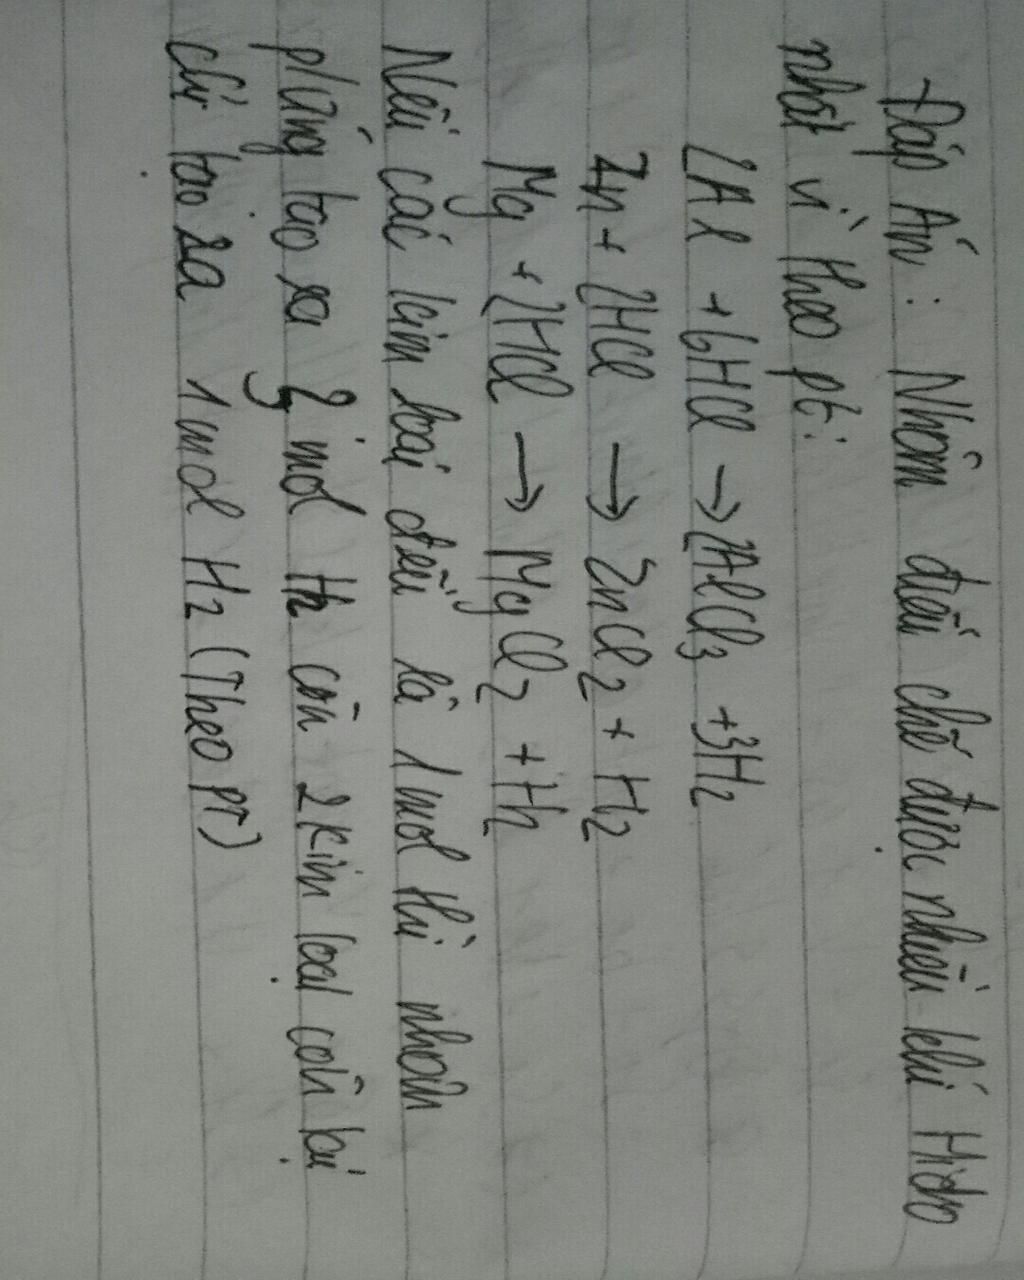 Đáp Án: Nhôm điều chế được nhiều khí Hidro
nhất vì theo pt:
2Al + 6HCl → 2AlCl3 + 3H2
Zn + 2HCl → ZnCl2 + H2
Mg + 2HCl → MgCl2 + H2
Nếu các kim loại đều là 1 mol thì nhôm
p/ứng tạo ra mol H2 còn 2 kim loại còn lại
chỉ tạo ra 1 mol H2 (Theo PT)